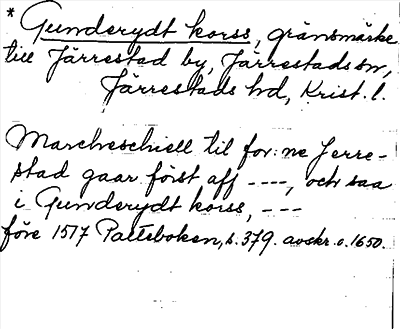 * Gunderydt korss, gränsmärke
till Järrestad by, Järrestads sn,
Järrestads hd, Krist. l.
Marcheschiell til for: ne Jerre-
stad gaar först aff ----, och saa
i Gunderydt korss, ---
före 1517 Palteboken, s. 379. avskr. o. 1650.